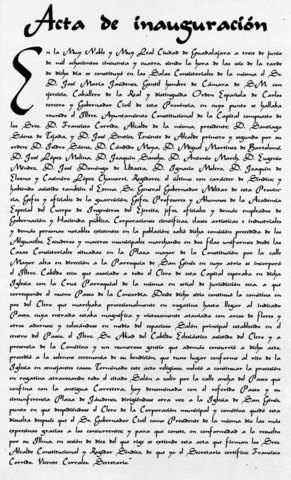 Acta de inauguración
En la Muy Noble y Muy Leal Ciudad de Guadalajara a trece de junio
de mil ochocientos cincuenta y cuatro, siendo la hora de las seis de la tarde
de dicho día se constituyó en las Salas Consistoriales de la misma el Sr.
D. José María Jáudenes, Gentil hombre de Cámara de S.M. con
ejercicio, Caballero de la Real y distinguida Orden Española de Carlos
tercero y Gobernador Civil de esta Provincia, en cuyo punto se hallaba
reunido el Iltre. Ayuntamiento Constitucional de la Capital compuesto de
los Sres. D. Francisco Corrido, Alcalde de la misma, presidente; D. Santiago
Sáenz de Tejada, y D. José Benítez, Teniente de Alcalde primero y segundo por su
orden; D. Isidro Sáenz, D. Cándido Moya, D. Miguel Martínez de Bartolomé,
D. José López Molina, D. Joaquín Sancho, D. Antonio March, D. Eugenio
Méndez, D. José Domingo de Udaeta, D. Ignacio Molero, D. Joaquín de
Elezna y Casimiro López Chavarri, Regidores, el último con carácter de Síndico y
habiendo asistido también el Excmo. Sr. General Gobernador Militar de esta Provin
cia, Gefes y oficiales de la guarnición, Gefes, Profesores y Alumnos de la Academia
Especial del Cuerpo de Ingenieros del Ejército, jefes, ofiales y demás empleados de
Gobernación y Hacienda pública, Corporaciones científicas, clases artísticas e industriales
y demás personas notables existentes en la población; salió dicha comisión precedida de los
Alguaciles, Escuderos y maceros municipales marchando en dos filas uniformes desde las
Casas Consistoriales situadas en la Plaza mayor de la Constitución por la calle
Mayor alta en dirección a la Parroquia de San Ginés en cuyo atrio se incorporó
el Illtre. Cabildo eco. que asociado a todo el Clero de esta Capital esperaba en dicha
Iglesia con la Cruz Parroquial de la misma en señal de jurisdicción eco.a. a que
corresponde el nuevo Paseo de la Concordia. Desde dicho sitio continuó la comitiva en
pos del Clero que marchaba procesionalmente en rogativa hasta llegar al indicado
Paseo, cuya entrada estaba magnífica y vistosamente ataviada con arcos de flores y
otros adornos; y colocándose en medio del espacioso Salón principal establecido en el
centro del Paseo, el Illtre. Sr. Abad del Cabildo Eclesiástico asistido del Clero y a
presencia de la Comitiva y un numeroso gentío que además concurrió a dicho acto,
procedió a la solemne ceremonia de su bendición, que tuvo lugar conforme al rito de la
Iglesia en semejantes casos. Terminado este acto religioso, volvió a continuar la procesión
en rogativa atravesando todo el citado Salón a salir por la calle ancha del Paseo que
confina la antigua Carretera, hoy denominada con el referido Paseo y su
circunferencia Plaza de Jáudenes, dirigiéndose otra vez a la Iglesia de San Ginés,
punto en que despidiéndose el Clero de la Corporación municipal y comitiva quedó esta
disuelta después que el Sr. Gobernador Civil como Presidente de la misma dio las más
expresivas gracias a los concurrentes; y para que conste, en conformidad a lo resuelto
por su Illma. en sesión de diez del que rige se extiende esta acta que firman los Sres.
Alcalde Constitucional y Regidor Síndico, de que yo el Secretario certifico: Francisco
Corrido. Vicente Corrales. Secretario."